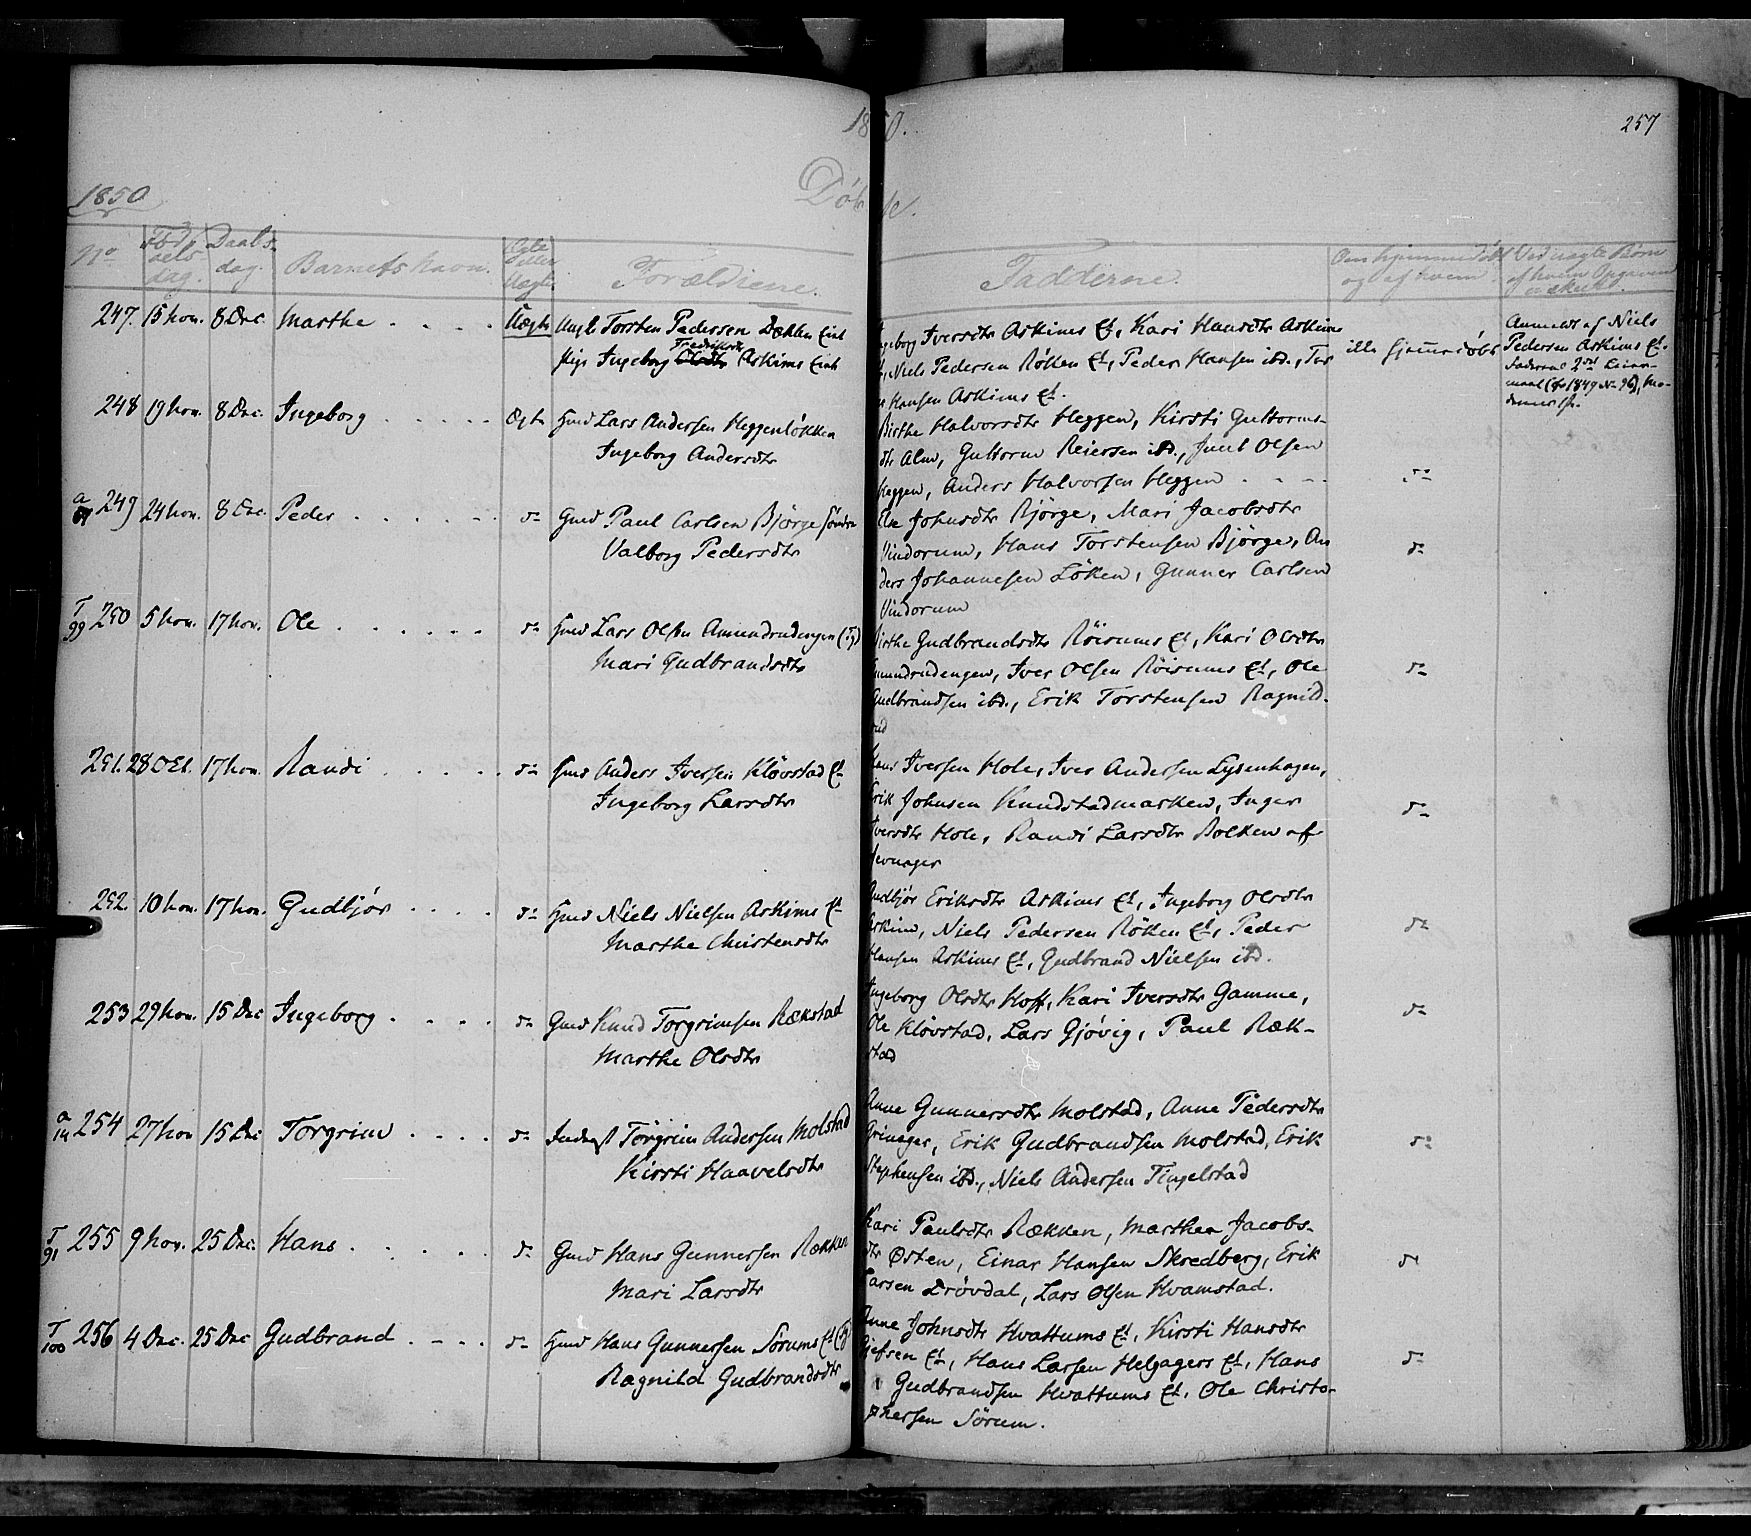 1850.
257
1850
Døbte.
No
Fødselsdag.
Daabsdag.
Barnets Navn.
Ægte eller Uægte
Forældrene.
Fadderne.
Om hjemmedøbt og af hvem
Ved uægte Børn af hvem Opgaven er skeet.
247. 15 Nov. 8 Dec. Marthe . . . . Uægte Ungk. Torsten Pedersen Dækken Eint
Pige Ingeborg Olsdtr Fredriksdtr Askims Eint
Ingeborg Iversdtr Askims Et, Kari Hansdtr Askims
Et, Niels Pedersen Røken Et, Peder Hansen ibd., Tor
Hansen Askims Et.
ikke hjemmedøbt
Anmeldt af Niels
Pedersen Askims Et.
Faderens 2det Leier-
maal (cfr 1849 No 96), Mo-
derens 1ste.
248 19 Nov. 8 Dec. Ingeborg . . . . . Ægte Hmd Lars Andersen Heggenløkken
Ingeborg Andersdtr
Birthe Halvorsdtr Heggen, Kirsti Guttorms-
dtr Alm, Guttorm Reiersen ibd., Juul Olsen
Heggen, Anders Halvorsen Heggen . . . .
do
a 249 24 Nov. 8 Dec. Peder . . . . . . do Gmd Paul Carlsen Bjørge Søndre
Valborg Pedersdtr
Else Johnsdtr Bjørge, Mari Jacobsdtr
Vindorum, Hans Torstensen Bjørge, An
ders Johannesen Løken, Gunner Carlsen
Vindorum
do
T 99 250 5 Nov. 17 Nov. Ole . . . . . . do Hmd Lars Olsen Amundrudengen (T 9)
Mari Gudbrandsdtr
Birthe Gudbrandsdtr Røisums Et, Kari Olsdtr
Amundrudengen, Iver Olsen Røisums Et, Ole
Gudbrandsen ibd., Erik Torstensen Ragnild-
rud
do
251. 28 Oct. 17 Nov. Randi . . . . . do Hmd Anders Iversen Kløvstad Et
Ingeborg Larsdtr
Hans Iversen Hole, Iver Andersen Lysenhagen,
Erik Johnsen Knudstadmarken, Inger
Iversdtr Hole, Randi Larsdtr Bolken af
Jevnager
do
252. 10 Nov. 17 Nov. Gudbjør . . . . do Hmd Niels Nielsen Askims Et
Marthe Christensdtr
Gudbjør Eriksdtr Askims Et, Ingeborg Olsdtr
Askim, Niels Pedersen Røken Et, Peder
Hansen Askims Et, Gudbrand Nielsen ibd.
do
253 29 Nov. 15 Dec Ingeborg . . . . do Gmd Knud Torgrimsen Rækstad
Marthe Olsdtr
Ingeborg Olsdtr Hoff, Kari Iversdtr Gamme,
Ole Kløvstad, Lars Gjøvig, Paul Ræk-
stad
do
a 14 254 27 Nov 15 Dec Torgrim . . . . do Inderst Torgrim Andersen Molstad
Kirsti Haavelsdtr
Anne Gunnersdtr Molstad, Anne Pedersdtr
Grinager, Erik Gudbrandsen Molstad, Erik
Stephensen ibd., Niels Andersen Tingelstad
do
T 91 255 9 Nov. 25 Dec. Hans . . . . . do Gmd Hans Gunnersen Rækken
Mari Larsdtr
Kari Paulsdtr Rækken, Marthea Jacobs-
dtr Østen, Einar Hansen Skredberg, Erik
Larsen Drøvdal, Lars Olsen Hvamstad.
do
T 100 256 4 Dec. 25 Dec Gudbrand . . . . do Hmd Hans Gunnersen Sørums Et
Ragnild Gudbrandsdtr
Anne Johnsdtr Hvattums Et, Kirsti Hansdtr
Gjefsen Et, Hans Larsen Helgagers Et, Hans
Gudbrandsen Hvattums Et, Ole Christo-
phersen Sørum.
do